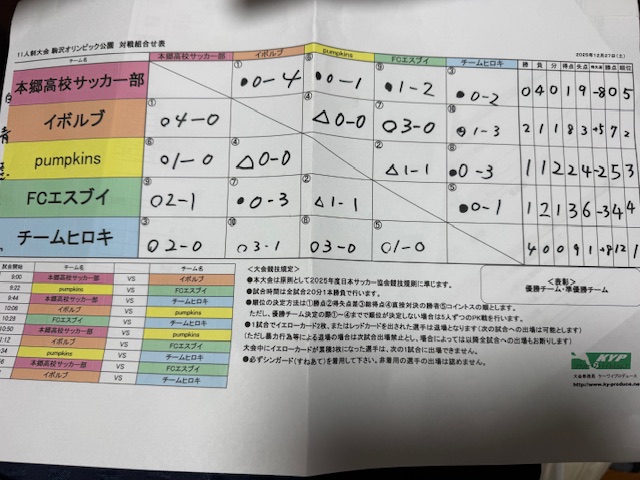 11人制大会 駒沢オリンピック公園 対戦組合せ表 2025年12月27日(土)
チーム名 本郷高校サッカー部 イボルブ pumpkins FCエスブイ チームヒロキ 勝 負 分 得点 失点 得失差 勝点 順位
本郷高校サッカー部 ①●0-4 ⑥●0-1 ⑨●1-2 ③●0-2 0 4 0 1 9 -8 0 5
イボルブ ①○4-0 ④△0-0 ⑦○3-0 ⑩●1-3 2 1 1 8 3 +5 7 2
pumpkins ⑥○1-0 ④△0-0 ②△1-1 ⑧●0-3 1 1 2 2 4 -2 5 3
FCエスブイ ⑨○2-1 ⑦●0-3 ②△1-1 ⑤●0-1 1 2 1 3 6 -3 4 4
チームヒロキ ③○2-0 ⑩○3-1 ⑧○3-0 ⑤○1-0 4 0 0 9 1 +8 12 1
試合開始 チーム名 チーム名
9:00 本郷高校サッカー部 VS イボルブ
9:22 pumpkins VS FCエスブイ
9:44 本郷高校サッカー部 VS チームヒロキ
10:06 イボルブ VS pumpkins
10:28 FCエスブイ VS チームヒロキ
10:50 本郷高校サッカー部 VS pumpkins
1:12 イボルブ VS FCエスブイ
:34 pumpkins VS チームヒロキ
本郷高校サッカー部 VS FCエスブイ
イボルブ VS チームヒロキ
<大会競技規定>
●本大会は原則として2025年度日本サッカー協会競技規則に準じます。
●試合時間は全試合20分1本勝負で行います。
●順位の決定方法は①勝点②得失点差③総得点④直接対決の勝者⑤コイントスの順とします。
ただし、優勝チーム決定の際①~④まででも順位が決定しない場合は5人ずつのPK戦を行います。
●1試合でイエローカード2枚、またはレッドカードを出された選手は退場となります(次の試合への出場は可能とします)
(ただし暴力行為等による退場は次試合出場禁止とし、場合によっては以降全試合への出場もお断りします)
大会中にイエローカードが累積3枚になった選手は、次の1試合に出場できません。
●必ずシンガード(すねあて)を着用して下さい。非着用の選手の出場は認めません。
<表彰>
優勝チーム・準優勝チーム
KYP
大会事務局 ケーワイプロデュース
http://www.ky-produce.ne